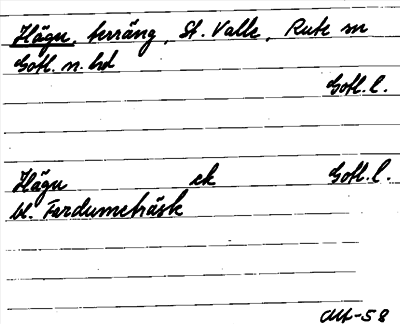 Hägu, terräng, St. Valle, Rute sn
Gotl. n. hd
Gotl. l.
Hägu ek Gotl. l.
bl. Fardumeträsk
-58